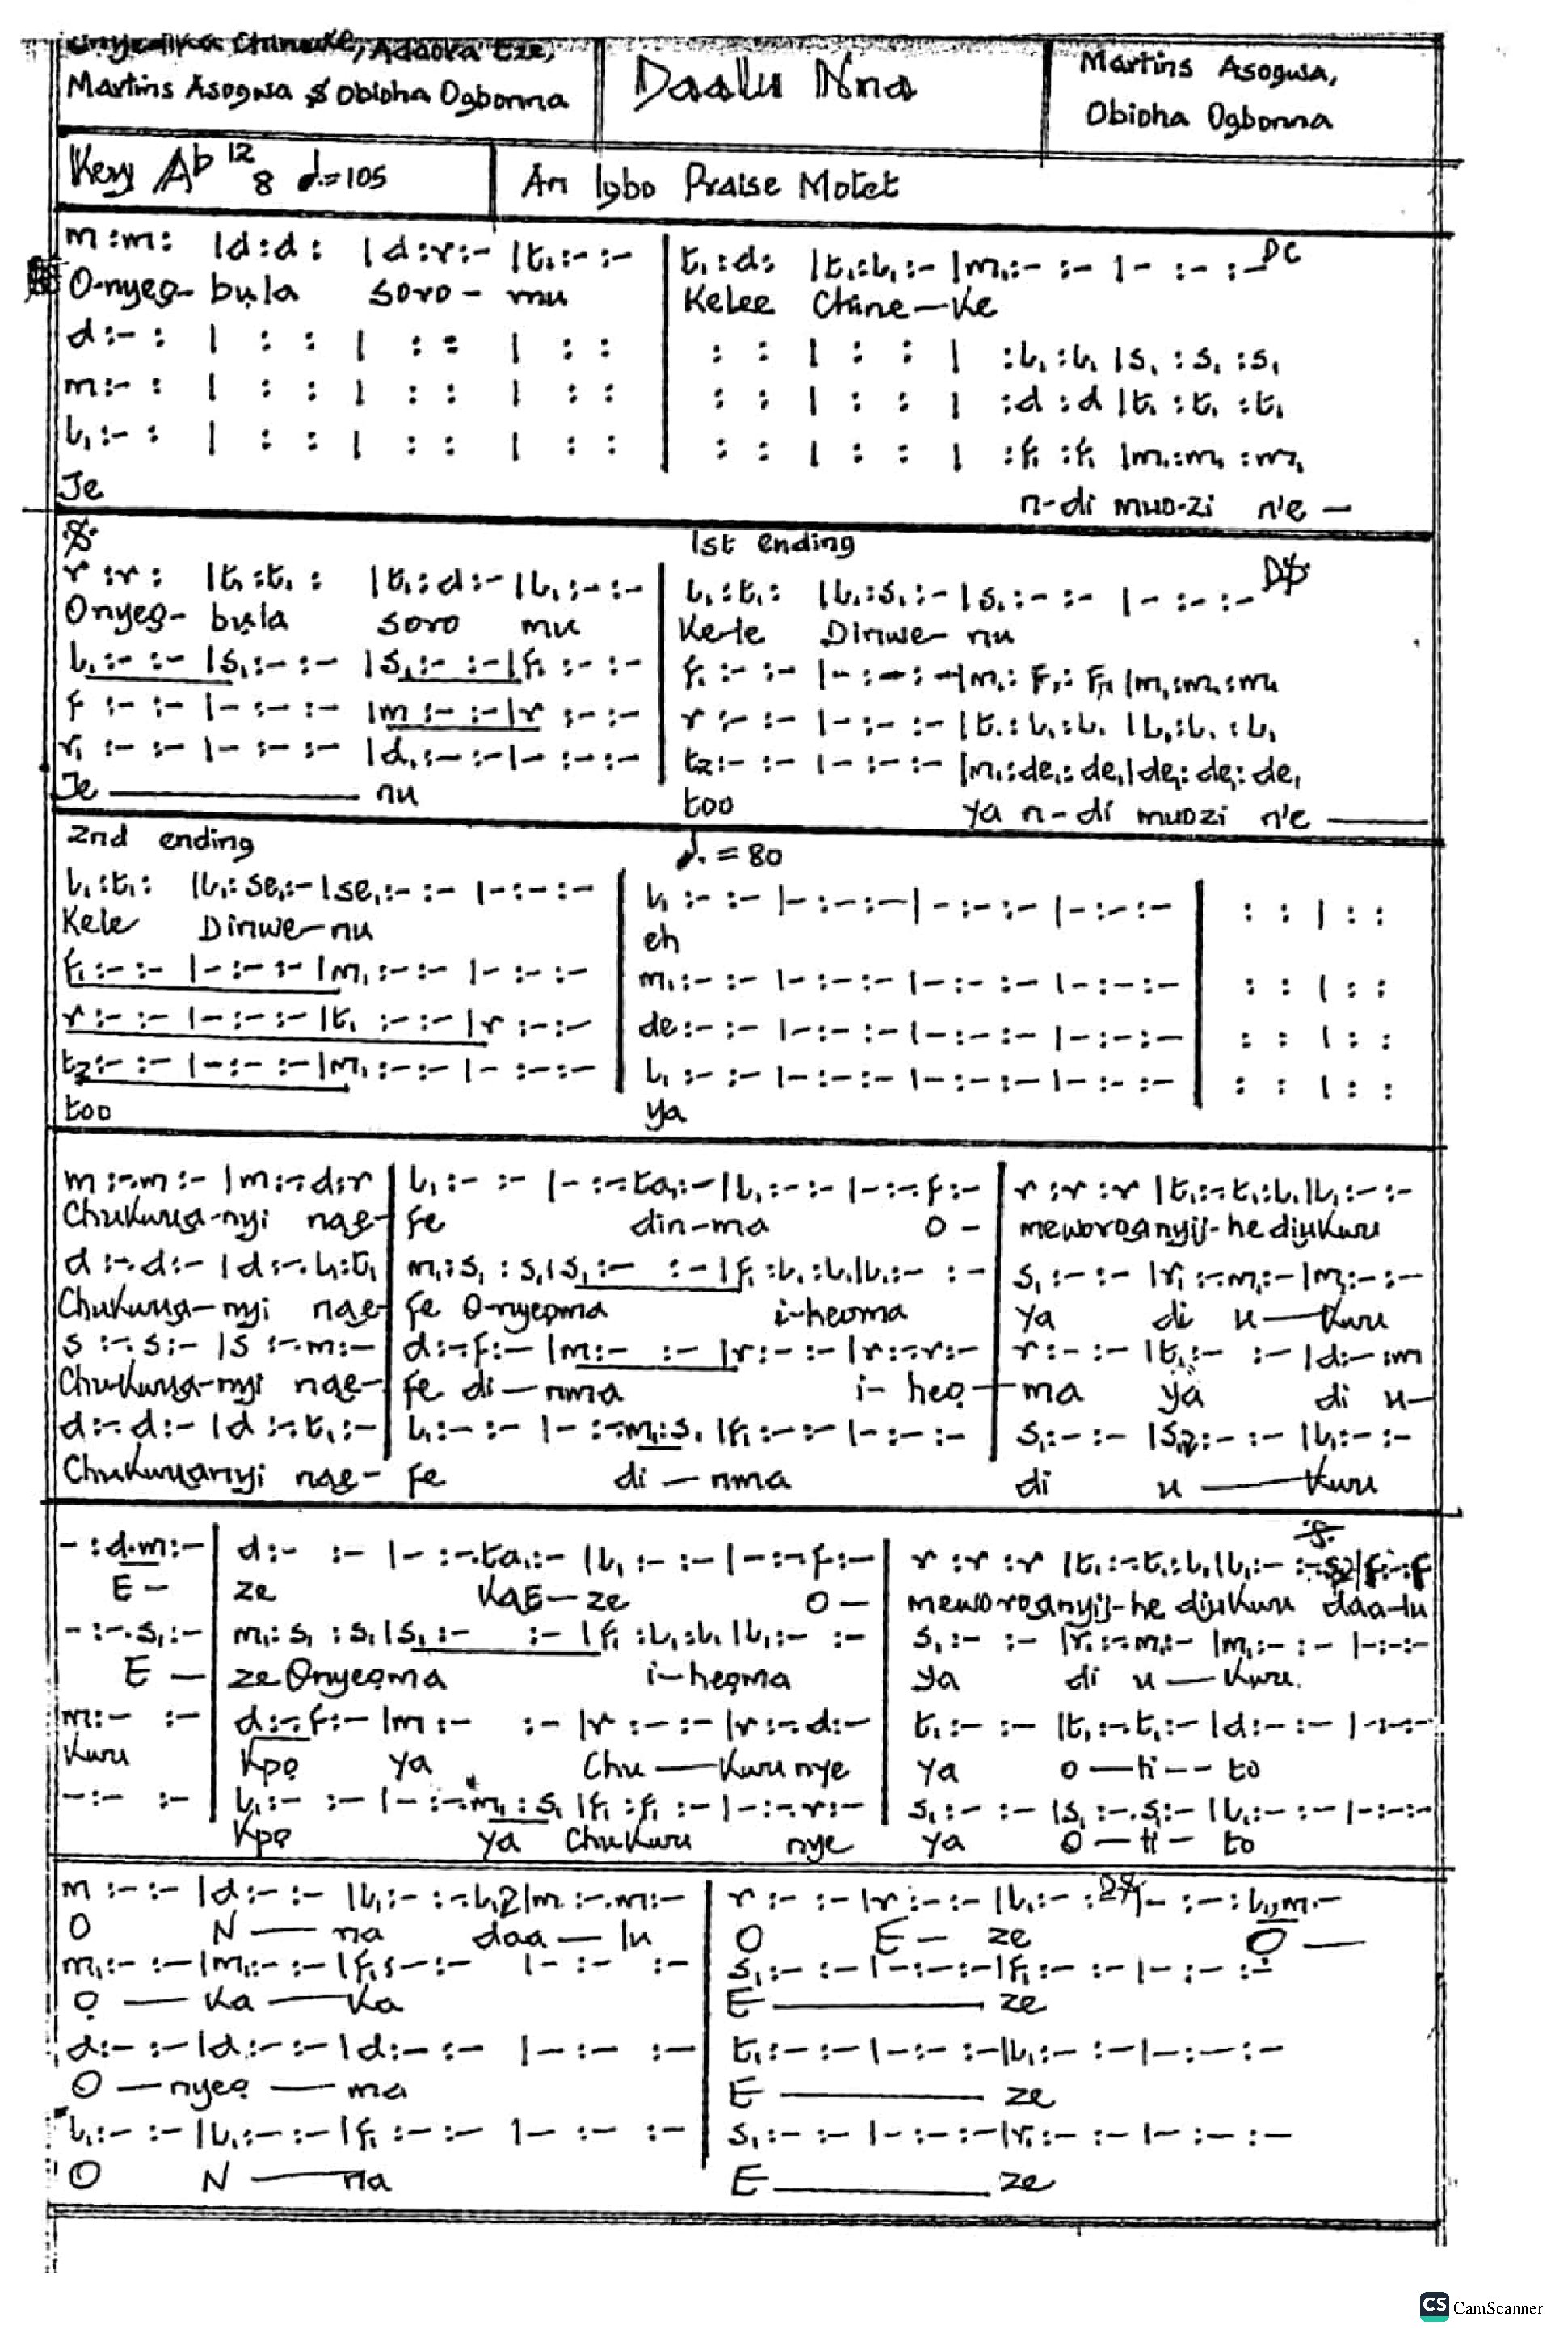 Chineke, Adaora Eze,
Martins Asogwa & Obioha Ogbonna
Daalu Nna
Martins Asogwa,
Obioha Ogbonna
Key Ab 12 8 ♩.=105
An Igbo Praise Motet
m :m: |d:d: |d:r:- |t₁:-:- | t₁:d: |t₁:l₁:- |m₁:-:- |-:-:- DC
O-nyeg- bụla soro- mu Kelee Chine-ke
d:-: | : : | : : | : : | : : | : : | :l₁:l₁ |s₁:s₁:s₁
m:-: | : : | : : | : : | : : | : : | :d:d |t₁:t₁:t₁
l₁:-: | : : | : : | : : | : : | : : | :f₁:f₁ |m₁:m₁:m₁
Je n-di muo-zi n'e -
1st ending
r:r: |t₁:t₁: |t₁:d:- |l₁:-:- | l₁:t₁: |l₁:s₁:- |s₁:-:- |-:-:- D𝄋
Onyeg- bụla soro mu Ke-le Dinwe- nu
l₁:-:- |s₁:-:- |s₁:-:- |f₁:-:- | f₁:-:- |-:-:- |m₁:f₁:f₁ |m₁:m₁:m₁
f:-:- |-:-:- |m:-:- |r:-:- | r:-:- |-:-:- |t₁:l₁:l₁ |l₁:l₁:l₁
r₁:-:- |-:-:- |d₁:-:- |-:-:- | t₂:-:- |-:-:- |m₁:de₁:de₁ |de₁:de₁:de₁
Je nu too ya n-di muozi n'e
2nd ending ♩. = 80
l₁:t₁: |l₁:se₁:- |se₁:-:- |-:-:- | l₁:-:- |-:-:- |-:-:- |-:-:- | : : | : :
Kele Dinwe-nu eh
f₁:-:- |-:-:- |m₁:-:- |-:-:- | m₁:-:- |-:-:- |-:-:- |-:-:- | : : | : :
r:-:- |-:-:- |t₁:-:- |r:-:- | de:-:- |-:-:- |-:-:- |-:-:- | : : | : :
t₂:-:- |-:-:- |m₁:-:- |-:-:- | l₁:-:- |-:-:- |-:-:- |-:-:- | : : | : :
too ya
m:-.m:- |m:-.d:r | l₁:-:- |-:-.ta₁:- |l₁:-:- |-:-.f:- | r:r:r |t₁:-.t₁:l₁ |l₁:-:-
Chukwua-nyi nae- fe din-ma O- meworoanyij-he dịukwu
d:-.d:- |d:-.l₁:t₁ | m₁:s₁:s₁ |s₁:- :- |f₁:l₁:l₁ |l₁:- :- | s₁:-:- |r₁:-.m₁:- |m₁:-:-
Chukwua-nyi nae- fe O-nyeọma i-heoma ya di u-kwu
s:-.s:- |s:-.m:- | d:-.f:- |m:- :- |r:-:- |r:-.r:- | r:-:- |t₁:- :- |d:-:m
Chukwua-nyi nae- fe di-nma i- heọ-ma ya di u-
d:-.d:- |d:-.t₁:- | l₁:-:- |-:-.m₁:s₁ |f₁:-:- |-:-:- | s₁:-:- |s₂:-:- |l₁:-:-
Chukwuanyi nae- fe di-nma di u-kwu
-:d.m:- | d:- :- |-:-.ta₁:- |l₁:-:- |-:-.f:- | r:r:r |t₁:-.t₁:l₁
E- ze KaE-ze O- meworoanyij-he dịukwu daa-lu
-:-.s₁:- | m₁:s₁:s₁ |s₁:- :- |f₁:l₁:l₁ |l₁:- :- | s₁:- :- |r₁:-.m₁:- |m₁:-:- |-:-:-
E- zeOnyeọma i-heọma ya di u-kwu.
|m:- :- | d:-.f:- |m:- :- |r:-:- |r:-.d:- | t₁:- :- |t₁:-.t₁:- |d:-:- |-:-:-
Kwu Kpọ ya Chu-kwu nye ya o-ti-- to
-:- :- | l₁:- :- |-:-.m₁:s₁ |f₁:f₁:- |-:-.r:- | s₁:- :- |s₁:-.s₁:- |l₁:-:- |-:-:-
Kpọ ya Chukwu nye ya O-ti- to
m:-:- |d:-:- |l₁:- :-.l₁ |m:-.m:- | r:- :- |r:-:- |l₁:- : D𝄋 |-:-:l₁.m:-
O N-na daa-lu O E- ze O-
m₁:-:- |m₁:-:- |f₁.s:-:- |-:- :- | s₁:- :- |-:-:- |f₁:- :- |-:-:-
Ọ-ka-ka E ze
d:- :- |d:-:- |d:-:- |-:- :- | t₁:-:- |-:- :- |l₁:- :- |-:-:-
O-nyeọ-ma E ze
l₁:- :- |l₁:-:- |f₁:-:- |-:- :- | s₁:- :- |-:-:- |r₁:- :- |-:-:-
O N-na E ze
CS CamScanner